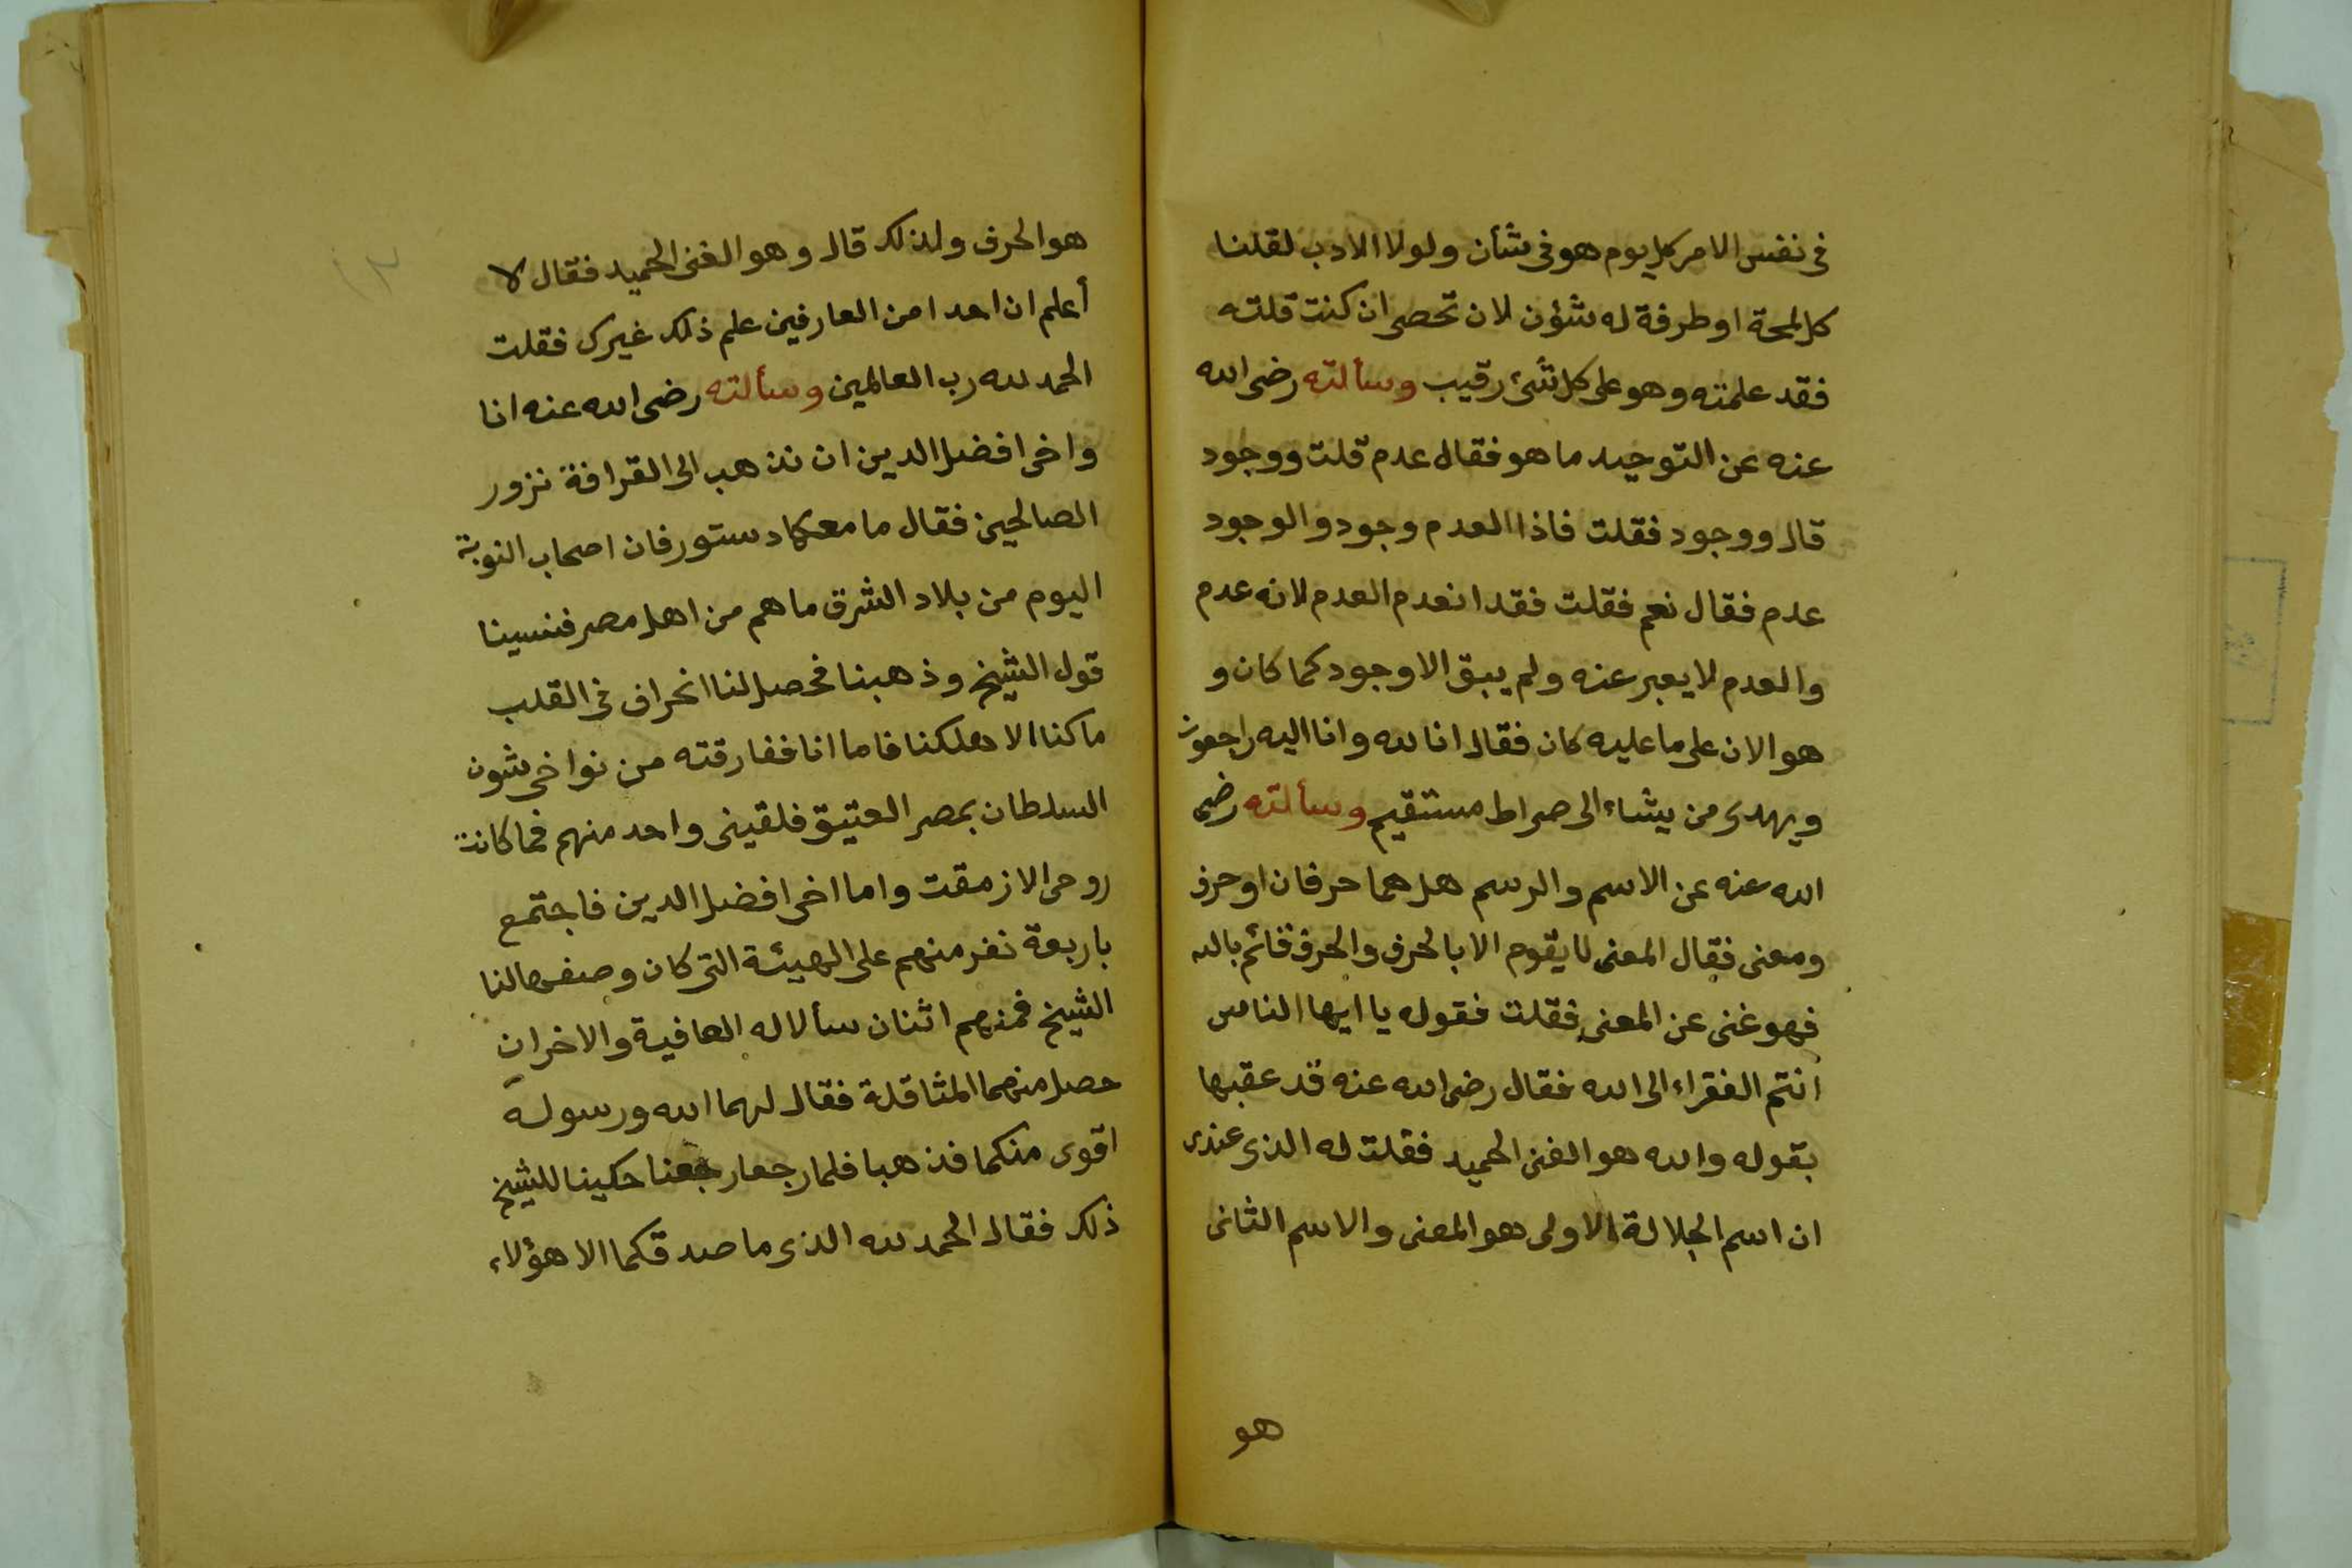 فى نفس الامر كل يوم هو فى شأن ولولا الادب لقلنا
كل لمحة او طرفة له شؤن لان تحصى ان كنت قلته
فقد علمته وهو على كل شئ رقيب وسألته رضى الله
عنه عن التوحيد ما هو فقال عدم قلت ووجود
قال ووجود فقلت فاذا العدم وجود والوجود
عدم فقال نعم فقلت فقد انعدم العدم لانه عدم
والعدم لا يعبر عنه ولم يبق الا وجود كما كان و
هو الان على ما عليه كان فقال انا لله وانا اليه راجعون
ويهدى من يشاء الى صراط مستقيم وسألته رضى
الله عنه عن الاسم والرسم هل هما حرفان او حرف
ومعنى فقال المعنى لا يقوم الا بالحرف والحرف قائم بالله
فهو غنى عن المعنى فقلت فقوله يا ايها الناس
انتم الفقراء الى الله فقال رضى الله عنه قد عقبها
بقوله والله هو الغنى الحميد فقلت له الذى عندى
ان اسم الجلالة الاولى هو المعنى والاسم الثانى
هو
هو الحرف ولذلك قال وهو الغنى الحميد فقال لا
أعلم ان احدا من العارفين علم ذلك غيرك فقلت
الحمد لله رب العالمين وسألته رضى الله عنه انا
واخى افضل الدين ان نذهب الى القرافة نزور
الصالحين فقال ما معكما دستور فان اصحاب النوبة
اليوم من بلاد الشرق ما هم من اهل مصر فنسينا
قول الشيخ وذهبنا فحصل لنا انحراف فى القلب
ما كنا الا هلكنا فاما انا ففارقته من نواحى شون
السلطان بمصر العتيق فلقينى واحد منهم فما كانت
روحى الا زهقت واما اخى افضل الدين فاجتمع
باربعة نفر منهم على الهيئة التى كان وصفها لنا
الشيخ فمنهم اثنان سألا له العافية والاخران
حصل منهما المثاقلة فقال لهما الله ورسوله
اقوى منكما فذهبا فلما رجعا رجعنا حكينا للشيخ
ذلك فقال الحمد لله الذى ما صدقكما الا هؤلاء
١٣